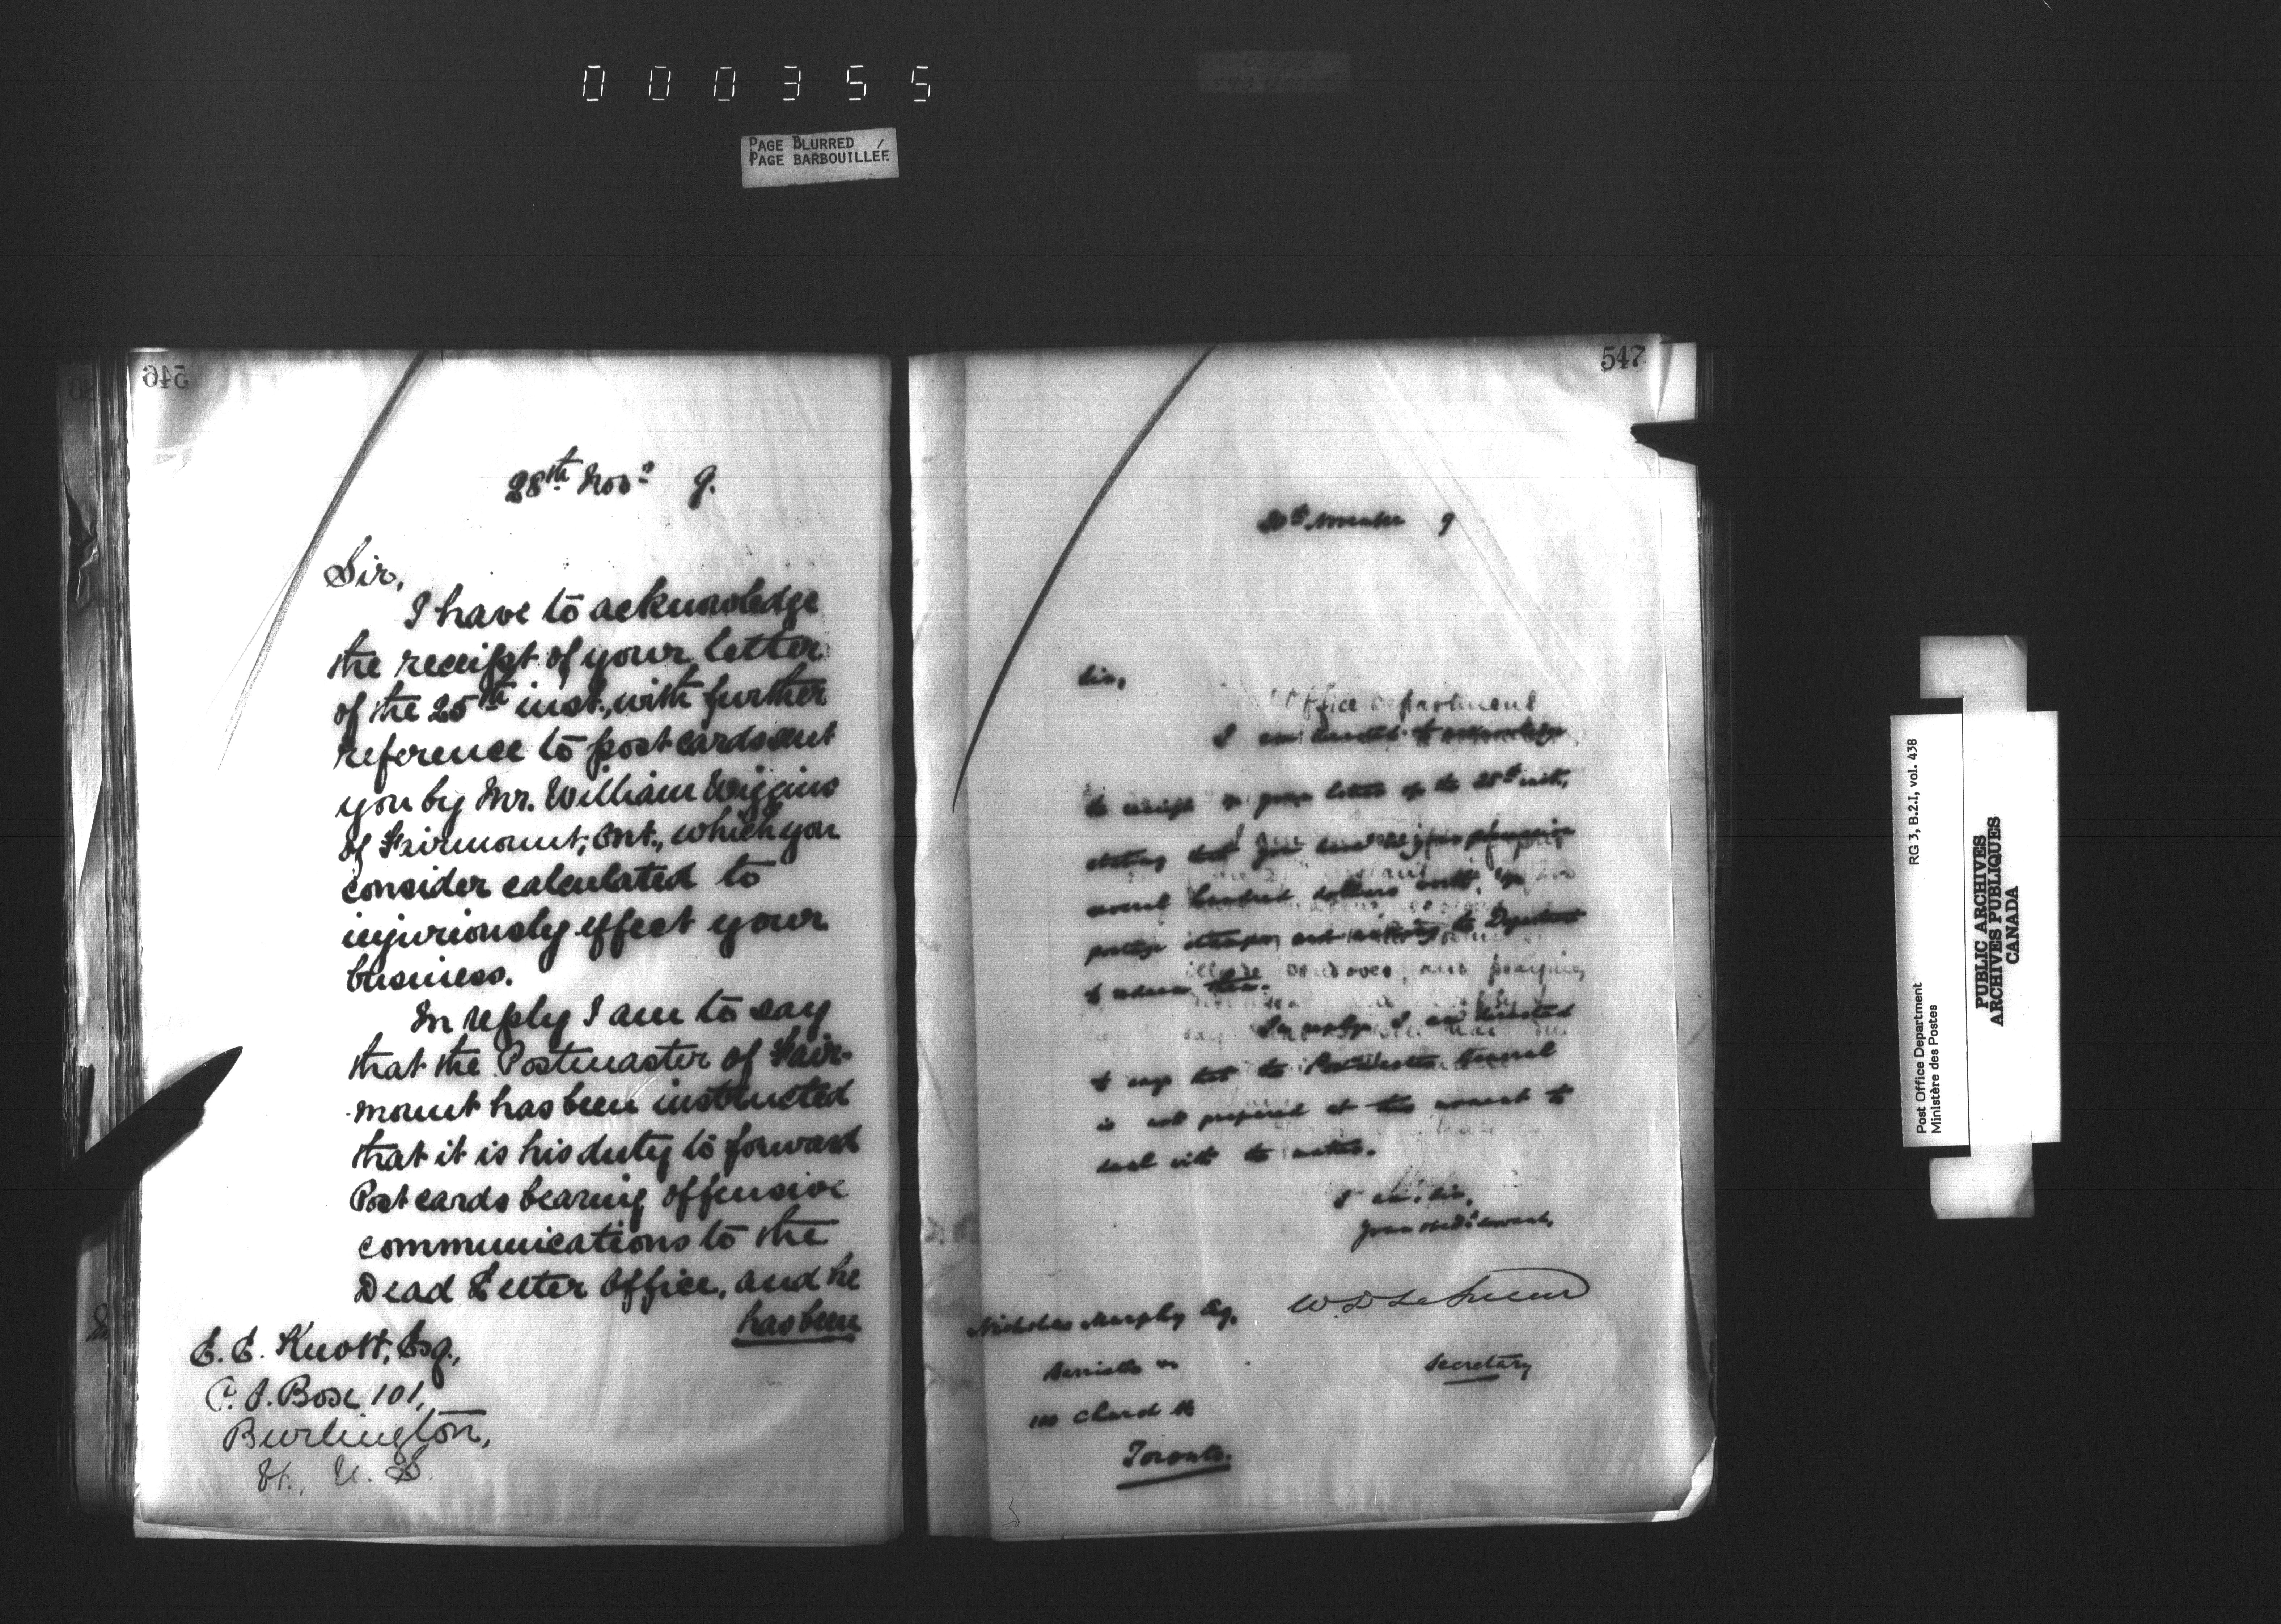 000355
PAGE BLURRED
PAGE BARBOUILLÉE
546
28th Novr 9.
Sir,
I have to acknowledge
the receipt of your letter
of the 25th inst., with further
reference to post cards sent
you by Mr. William Wiggins
of Fairmount, Ont., which you
consider calculated to
injuriously effect your
business.
In reply I am to say
that the Postmaster of Fair-
mount has been instructed
that it is his duty to forward
Post cards bearing offensive
communications to the
Dead Letter Office, and he
has been
E. E. Knott, Esq.,
P. O. Box 101,
Burlington,
Vt., U. S.
547
November 9
Sir,
Office Department
I am directed to acknowledge
the receipt of your letter of the 28th inst.,
stating that you have in your possession
several hundred dollars worth of
postage stamps, and asking the Department
to redeem them.
In reply I am directed
to say that the Postmaster General
is not prepared at this moment to
deal with the matter.
I am, Sir,
Your obedt. servant,
W D LeSueur
Secretary
Nicholas Murphy Esq.
Barrister
Church St
Toronto.
Post Office Department RG 3, B.2.I, vol. 438
Ministère des Postes
PUBLIC ARCHIVES
ARCHIVES PUBLIQUES
CANADA